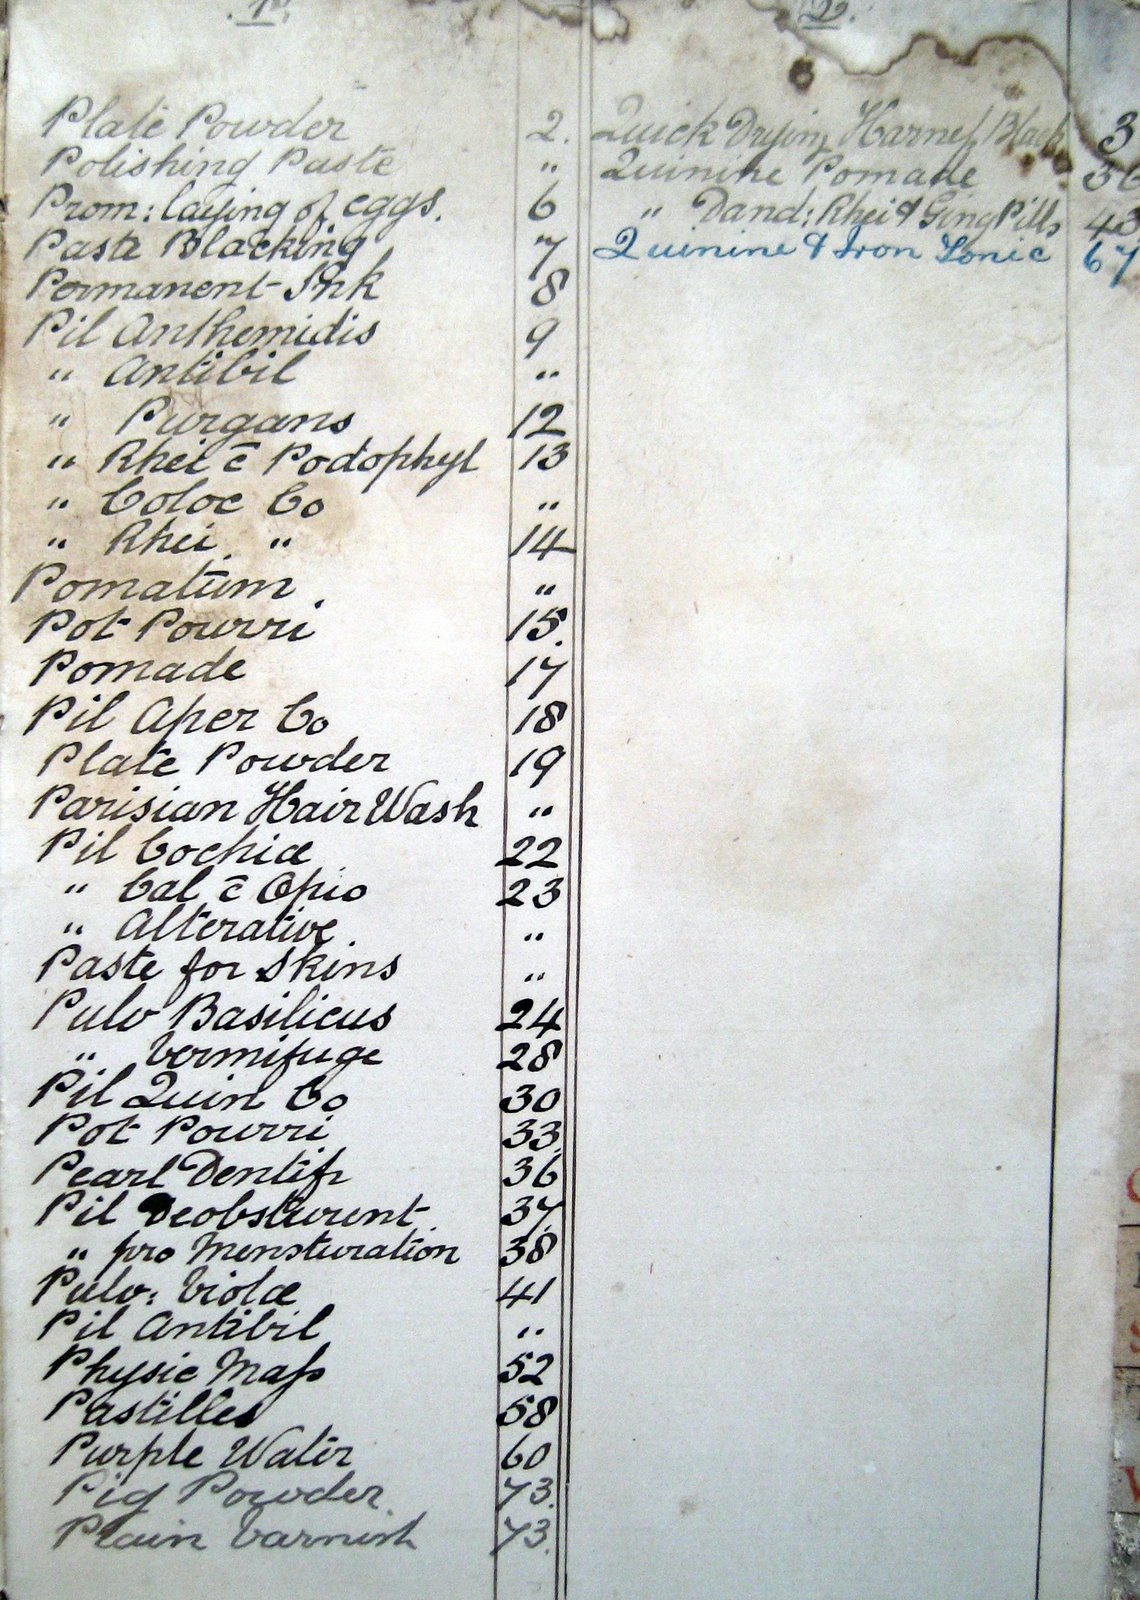 P.
Plate Powder 2.
Polishing Paste "
Prom: laying of eggs. 6
Paste Blacking 7
Permanent Ink 8
Pil Anthemidis 9
" Antibil "
" Purgans 12
" Rhei c̄ Podophyl 13
" Coloc Co "
" Rhei. " 14
Pomatum. "
Pot Pourri 15.
Pomade 17
Pil Aper Co 18
Plate Powder 19
Parisian Hair Wash "
Pil Cochiæ 22
" Cal c̄ Opio 23
" Alterative. "
Paste for Skins "
Pulv Basilicus 24
" Vermifuge 28
Pil Quin Co 30
Pot Pourri 33.
Pearl Dentif 36
Pil Deobsturent. 37.
" pro Mensturation 38
Pulv: Violæ 41
Pil Antibil "
Physic Maſs 52
Pastilles 58
Purple Water 60
Pig Powder. 73.
Plain Varnish 73.
Q.
Quick Drying Harneſs Black 3
Quinine Pomade 36
" Dand: Rhei & Ging Pills 43
Quinine & Iron Tonic 67